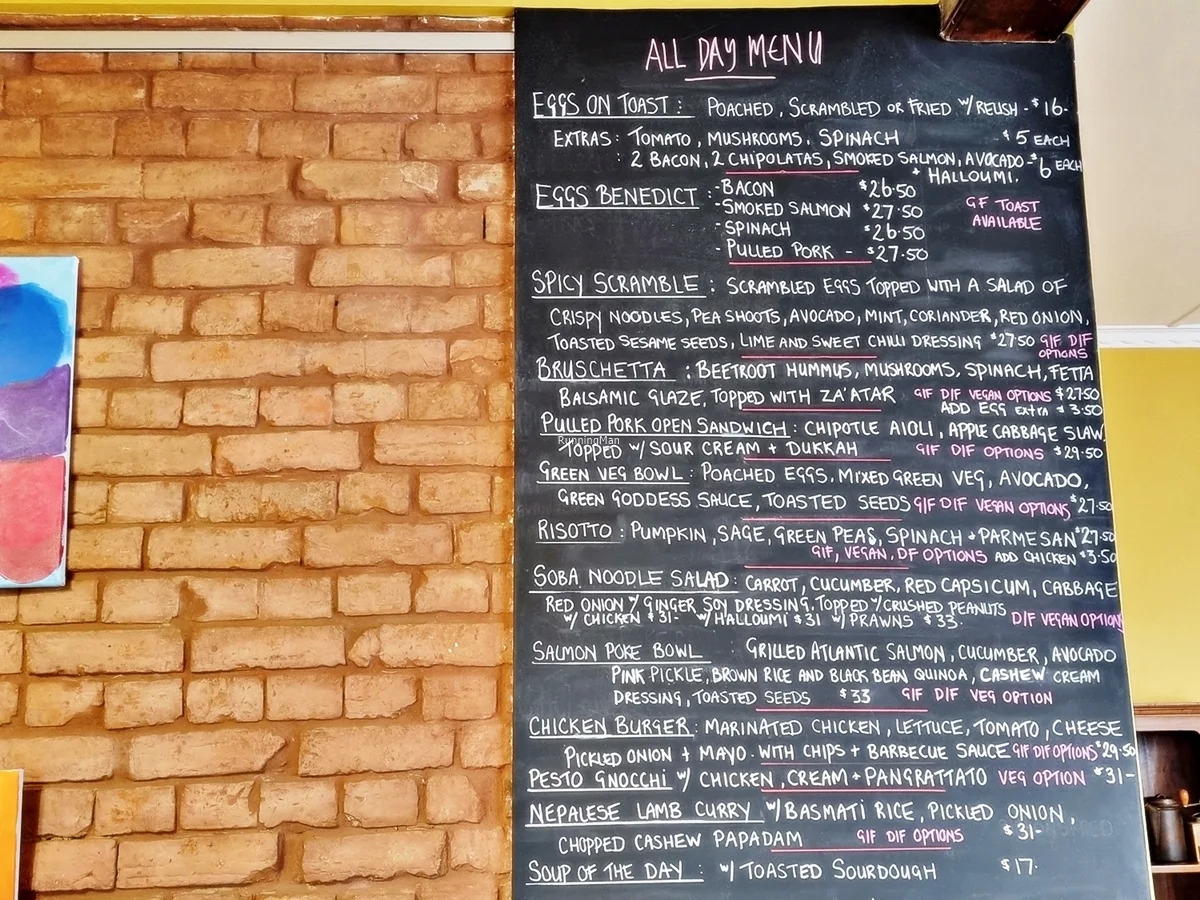 ALL DAY MENU
EGGS ON TOAST : POACHED, SCRAMBLED OR FRIED W/ RELISH - $16-
EXTRAS: TOMATO, MUSHROOMS, SPINACH - $5 EACH
: 2 BACON, 2 CHIPOLATAS, SMOKED SALMON, AVOCADO - $6 EACH
+ HALLOUMI.
EGGS BENEDICT : - BACON $26.50
- SMOKED SALMON $27.50
- SPINACH $26.50
- PULLED PORK - $27.50
GF TOAST
AVAILABLE
SPICY SCRAMBLE : SCRAMBLED EGGS TOPPED WITH A SALAD OF
CRISPY NOODLES, PEA SHOOTS, AVOCADO, MINT, CORIANDER, RED ONION,
TOASTED SESAME SEEDS, LIME AND SWEET CHILLI DRESSING $27.50 GIF DIF
OPTIONS
BRUSCHETTA : BEETROOT HUMMUS, MUSHROOMS, SPINACH, FETTA
BALSAMIC GLAZE, TOPPED WITH ZA'ATAR GIF DIF VEGAN OPTIONS $27.50
ADD EGG EXTRA $3.50
PULLED PORK OPEN SANDWICH : CHIPOTLE AIOLI, APPLE CABBAGE SLAW
RunningMan
TOPPED W/ SOUR CREAM + DUKKAH GIF DIF OPTIONS $29.50
GREEN VEG BOWL : POACHED EGGS, MIXED GREEN VEG, AVOCADO,
GREEN GODDESS SAUCE, TOASTED SEEDS GIF DIF VEGAN OPTIONS $27.50
RISOTTO : PUMPKIN, SAGE, GREEN PEAS, SPINACH + PARMESAN $27.50
GIF, VEGAN, DF OPTIONS ADD CHICKEN $3.50
SOBA NOODLE SALAD : CARROT, CUCUMBER, RED CAPSICUM, CABBAGE
RED ONION W/ GINGER SOY DRESSING, TOPPED W/ CRUSHED PEANUTS
W/ CHICKEN $31- W/ HALLOUMI $31 W/ PRAWNS $33. DIF VEGAN OPTIONS
SALMON POKE BOWL GRILLED ATLANTIC SALMON, CUCUMBER, AVOCADO
PINK PICKLE, BROWN RICE AND BLACK BEAN QUINOA, CASHEW CREAM
DRESSING, TOASTED SEEDS $33 GIF DIF VEG OPTION
CHICKEN BURGER : MARINATED CHICKEN, LETTUCE, TOMATO, CHEESE
PICKLED ONION + MAYO. WITH CHIPS + BARBECUE SAUCE GIF DIF OPTIONS $29.50
PESTO GNOCCHI W/ CHICKEN, CREAM + PANGRATTATO VEG OPTION $31-
NEPALESE LAMB CURRY W/ BASMATI RICE, PICKLED ONION,
CHOPPED CASHEW PAPADAM GIF DIF OPTIONS $31-
SOUP OF THE DAY : W/ TOASTED SOURDOUGH $17.